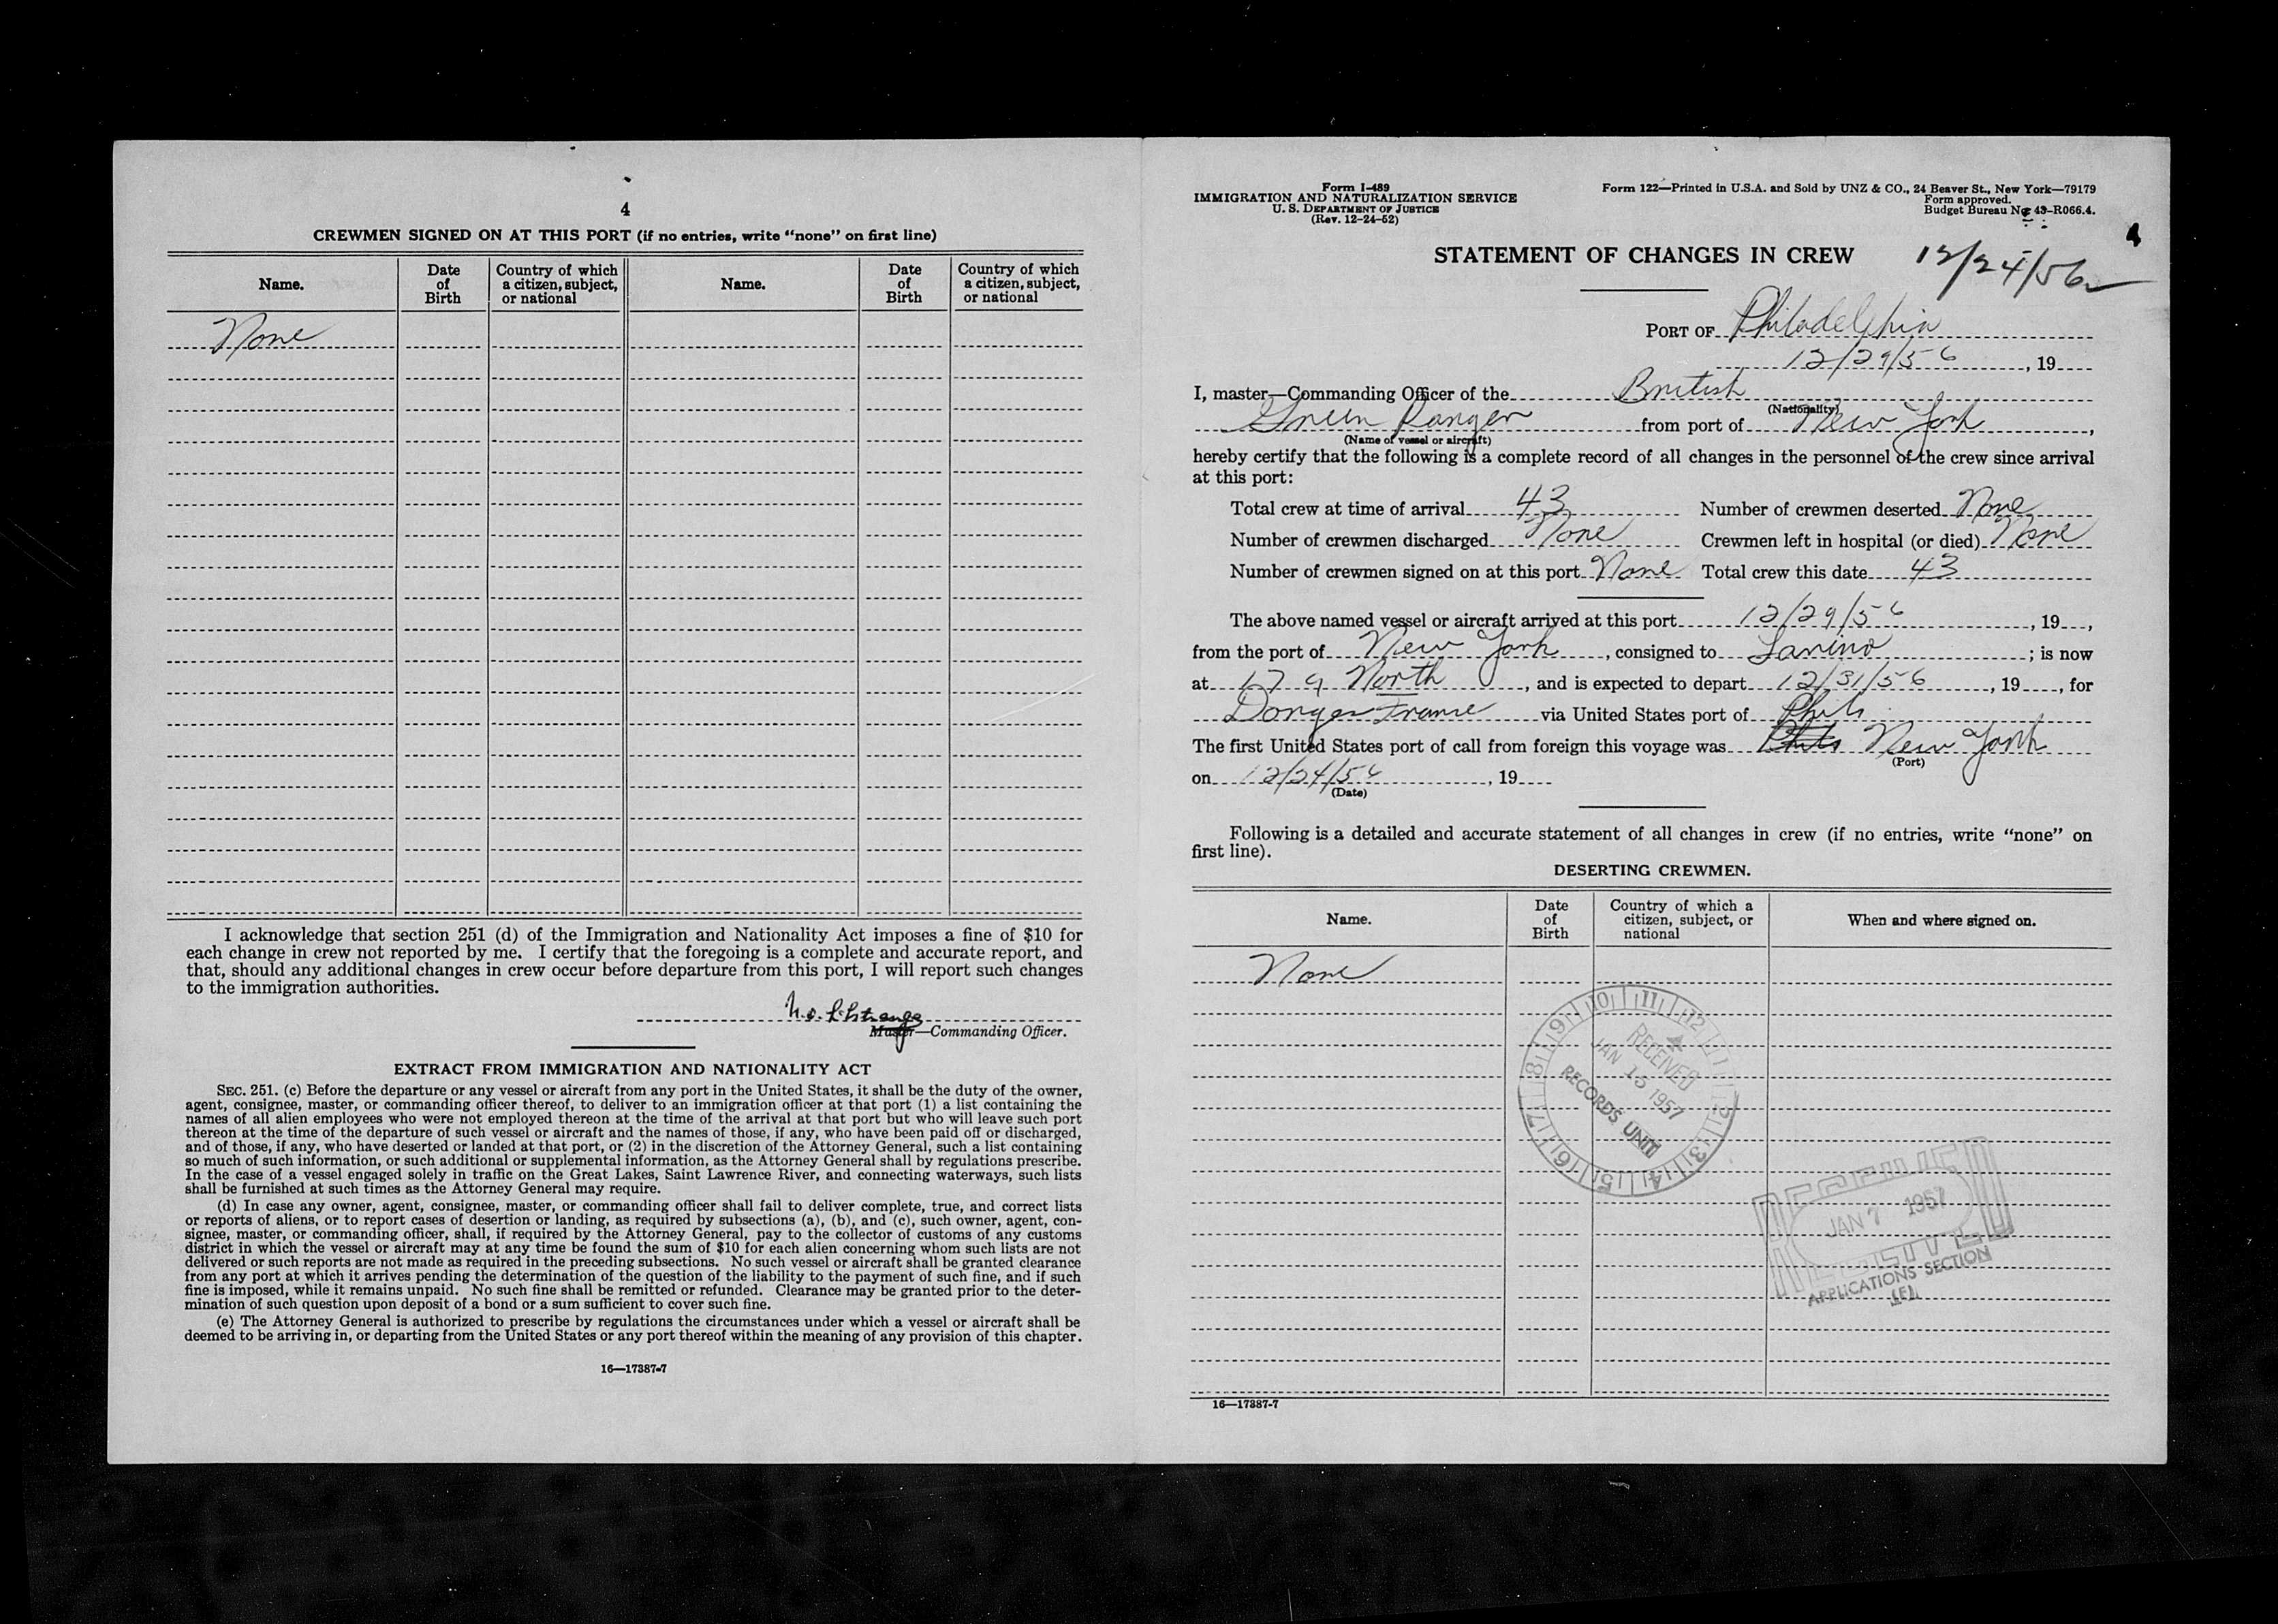 4
CREWMEN SIGNED ON AT THIS PORT (if no entries, write “none” on first line)
Name. Date of Birth Country of which a citizen, subject, or national Name. Date of Birth Country of which a citizen, subject, or national
None
I acknowledge that section 251 (d) of the Immigration and Nationality Act imposes a fine of $10 for
each change in crew not reported by me. I certify that the foregoing is a complete and accurate report, and
that, should any additional changes in crew occur before departure from this port, I will report such changes
to the immigration authorities.
Master—Commanding Officer.
EXTRACT FROM IMMIGRATION AND NATIONALITY ACT
SEC. 251. (c) Before the departure or any vessel or aircraft from any port in the United States, it shall be the duty of the owner,
agent, consignee, master, or commanding officer thereof, to deliver to an immigration officer at that port (1) a list containing the
names of all alien employees who were not employed thereon at the time of the arrival at that port but who will leave such port
thereon at the time of the departure of such vessel or aircraft and the names of those, if any, who have been paid off or discharged,
and of those, if any, who have deserted or landed at that port, or (2) in the discretion of the Attorney General, such a list containing
so much of such information, or such additional or supplemental information, as the Attorney General shall by regulations prescribe.
In the case of a vessel engaged solely in traffic on the Great Lakes, Saint Lawrence River, and connecting waterways, such lists
shall be furnished at such times as the Attorney General may require.
(d) In case any owner, agent, consignee, master, or commanding officer shall fail to deliver complete, true, and correct lists
or reports of aliens, or to report cases of desertion or landing, as required by subsections (a), (b), and (c), such owner, agent, con-
signee, master, or commanding officer, shall, if required by the Attorney General, pay to the collector of customs of any customs
district in which the vessel or aircraft may at any time be found the sum of $10 for each alien concerning whom such lists are not
delivered or such reports are not made as required in the preceding subsections. No such vessel or aircraft shall be granted clearance
from any port at which it arrives pending the determination of the question of the liability to the payment of such fine, and if such
fine is imposed, while it remains unpaid. No such fine shall be remitted or refunded. Clearance may be granted prior to the deter-
mination of such question upon deposit of a bond or a sum sufficient to cover such fine.
(e) The Attorney General is authorized to prescribe by regulations the circumstances under which a vessel or aircraft shall be
deemed to be arriving in, or departing from the United States or any port thereof within the meaning of any provision of this chapter.
16—17387-7
Form I-489
IMMIGRATION AND NATURALIZATION SERVICE
U. S. DEPARTMENT OF JUSTICE
(Rev. 12-24-52)
Form 122—Printed in U.S.A. and Sold by UNZ & CO., 24 Beaver St., New York—79179
Form approved.
Budget Bureau No. 43-R066.4.
4
STATEMENT OF CHANGES IN CREW 12/24/56
PORT OF Philadelphia
12/29/56, 19
I, master—Commanding Officer of the British
(Nationality)
Green Ranger from port of New York,
(Name of vessel or aircraft)
hereby certify that the following is a complete record of all changes in the personnel of the crew since arrival
at this port:
Total crew at time of arrival 43 Number of crewmen deserted None
Number of crewmen discharged None Crewmen left in hospital (or died) None
Number of crewmen signed on at this port None Total crew this date 43
The above named vessel or aircraft arrived at this port 12/29/56, 19,
from the port of New York, consigned to ; is now
at 179 North, and is expected to depart 12/31/56, 19, for
Donges France via United States port of Phila
The first United States port of call from foreign this voyage was Phila New York
(Port)
on 12/24/56, 19
(Date)
Following is a detailed and accurate statement of all changes in crew (if no entries, write “none” on
first line).
DESERTING CREWMEN.
Name. Date of Birth Country of which a citizen, subject, or national When and where signed on.
None
10 11 12 1 2 3 4 5 6 7 8 9
RECEIVED
JAN 15 1957
RECORDS UNIT
JAN 7 1957
APPLICATIONS SECTION
16—17387-7